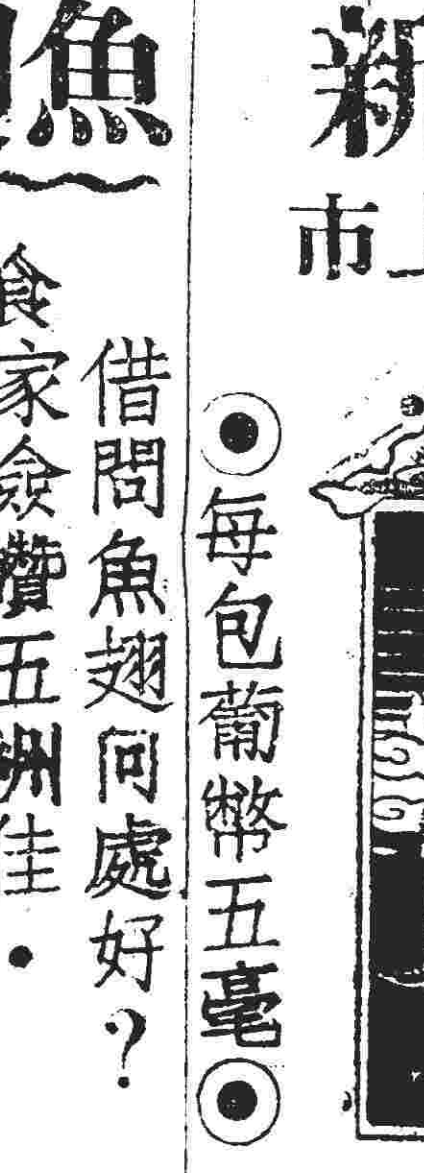 新
市
◉每包葡幣五毫◉
魚
借問魚翅何處好？
食家僉讚五洲佳．